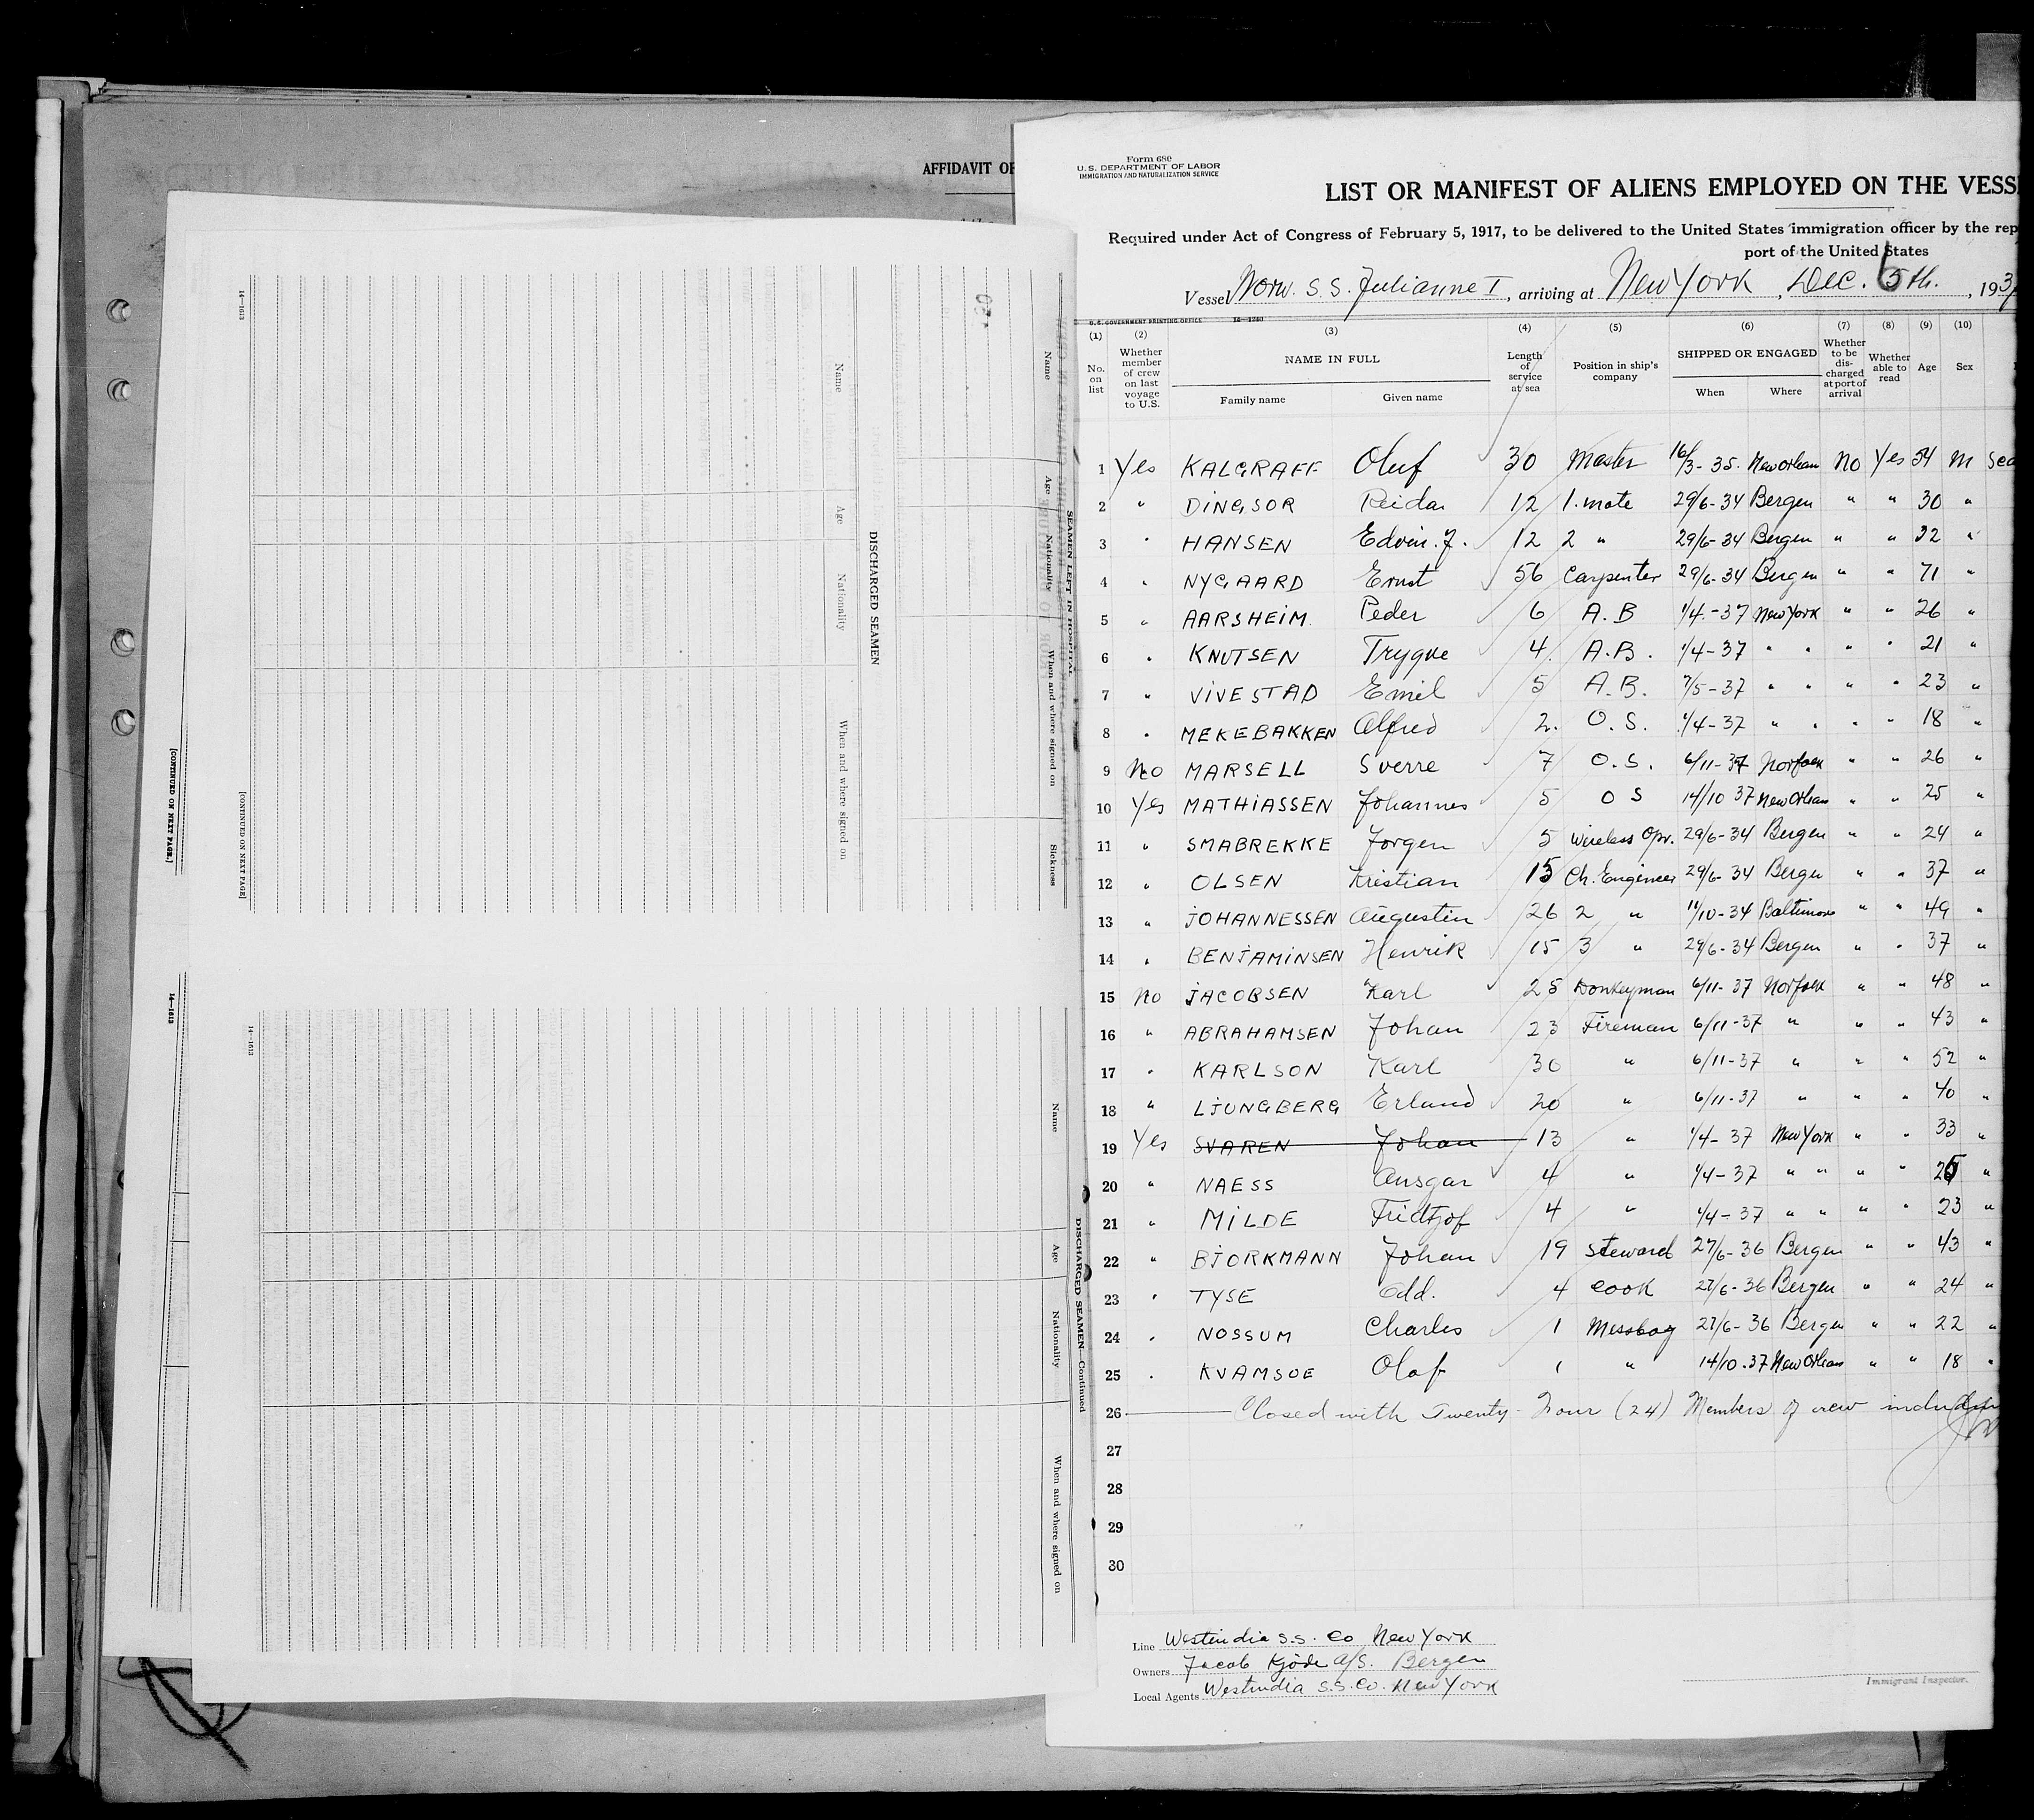 AFFIDAVIT OF
Form 680
U.S. DEPARTMENT OF LABOR
IMMIGRATION AND NATURALIZATION SERVICE
LIST OR MANIFEST OF ALIENS EMPLOYED ON THE VESS
Required under Act of Congress of February 5, 1917, to be delivered to the United States immigration officer by the rep
port of the United States
Vessel Norw. S.S. Julianne I, arriving at New York, Dec. 5th., 193
U.S. GOVERNMENT PRINTING OFFICE 14—1240
(1) (2) (3) (4) (5) (6) (7) (8) (9) (10)
No. on list
Whether member of crew on last voyage to U.S.
NAME IN FULL
Family name Given name
Length of service at sea
Position in ship's company
SHIPPED OR ENGAGED
When Where
Whether to be discharged at port of arrival
Whether able to read
Age
Sex
1 Yes KALGRAFF Oluf 30 Master 16/3-35. New Orlean No Yes 54 M Sca
2 " DINGSOR Reidar 12 1. mate 29/6-34 Bergen " " 30 "
3 " HANSEN Edvin. J. 12 2 " 29/6-34 Bergen " " 32 "
4 " NYGAARD Ernst 56 Carpenter 29/6-34 Bergen " " 71 "
5 " AARSHEIM Peder 6 A.B 1/4-37 New York " " 26 "
6 " KNUTSEN Trygve 4. A.B. 1/4-37 " " " " 21 "
7 " VIVESTAD Emil 5 A.B. 7/5-37 " " " " 23 "
8 " MEKEBAKKEN Alfred 2. O.S. 1/4-37 " " " " 18 "
9 No MARSELL Sverre 7 O.S. 6/11-37 Norfolk " " 26 "
10 Yes MATHIASSEN Johannes 5 OS 14/10 37 New Orleans " " 25 "
11 " SMABREKKE Jorgen 5 Wireless Opr. 29/6-34 Bergen " " 24 "
12 " OLSEN Kristian 15 Ch. Engineer 29/6-34 Bergen " " 37 "
13 " JOHANNESSEN Augustin 26 2 " 11/10-34 Baltimore " " 49 "
14 " BENJAMINSEN Henrik 15 3 " 29/6-34 Bergen " " 37 "
15 No JACOBSEN Karl 25 Donkeyman 6/11-37 Norfolk " " 48 "
16 " ABRAHAMSEN Johan 23 Fireman 6/11-37 " " " 43 "
17 " KARLSON Karl 30 " 6/11-37 " " " 52 "
18 " LJUNGBERG Erland 20 " 6/11-37 " " " 40 "
19 Yes SVAREN Johan 13 " 1/4-37 New York " " 33 "
20 " NAESS Ansgar 4 " 1/4-37 " " " " 25 "
21 " MILDE Fridtjof 4 " 1/4-37 " " " " 23 "
22 " BJORKMANN Johan 19 Steward 27/6-36 Bergen " " 43 "
23 " TYSE Odd. 4 Cook 27/6-36 Bergen " " 24 "
24 " NOSSUM Charles 1 Messboy 27/6-36 Bergen " " 22 "
25 " KVAMSOE Olaf 1 " 14/10.37 New Orleans " " 18 "
26 Closed with Twenty-Four (24) Members of crew including
27
28
29
30
Line Westindia S.S. Co New York
Owners Jacob Kjøde A/S. Bergen
Local Agents Westindia S.S. Co. New York
Immigrant Inspector.
SEAMEN LEFT IN HOSPITAL
Name Age Nationality When and where signed on Sickness
DISCHARGED SEAMEN
Name Age Nationality When and where signed on
14—1613
[CONTINUED ON NEXT PAGE]
[CONTINUED ON NEXT PAGE.]
14—1613
DISCHARGED SEAMEN—Continued
Name Age Nationality When and where signed on
14—1613